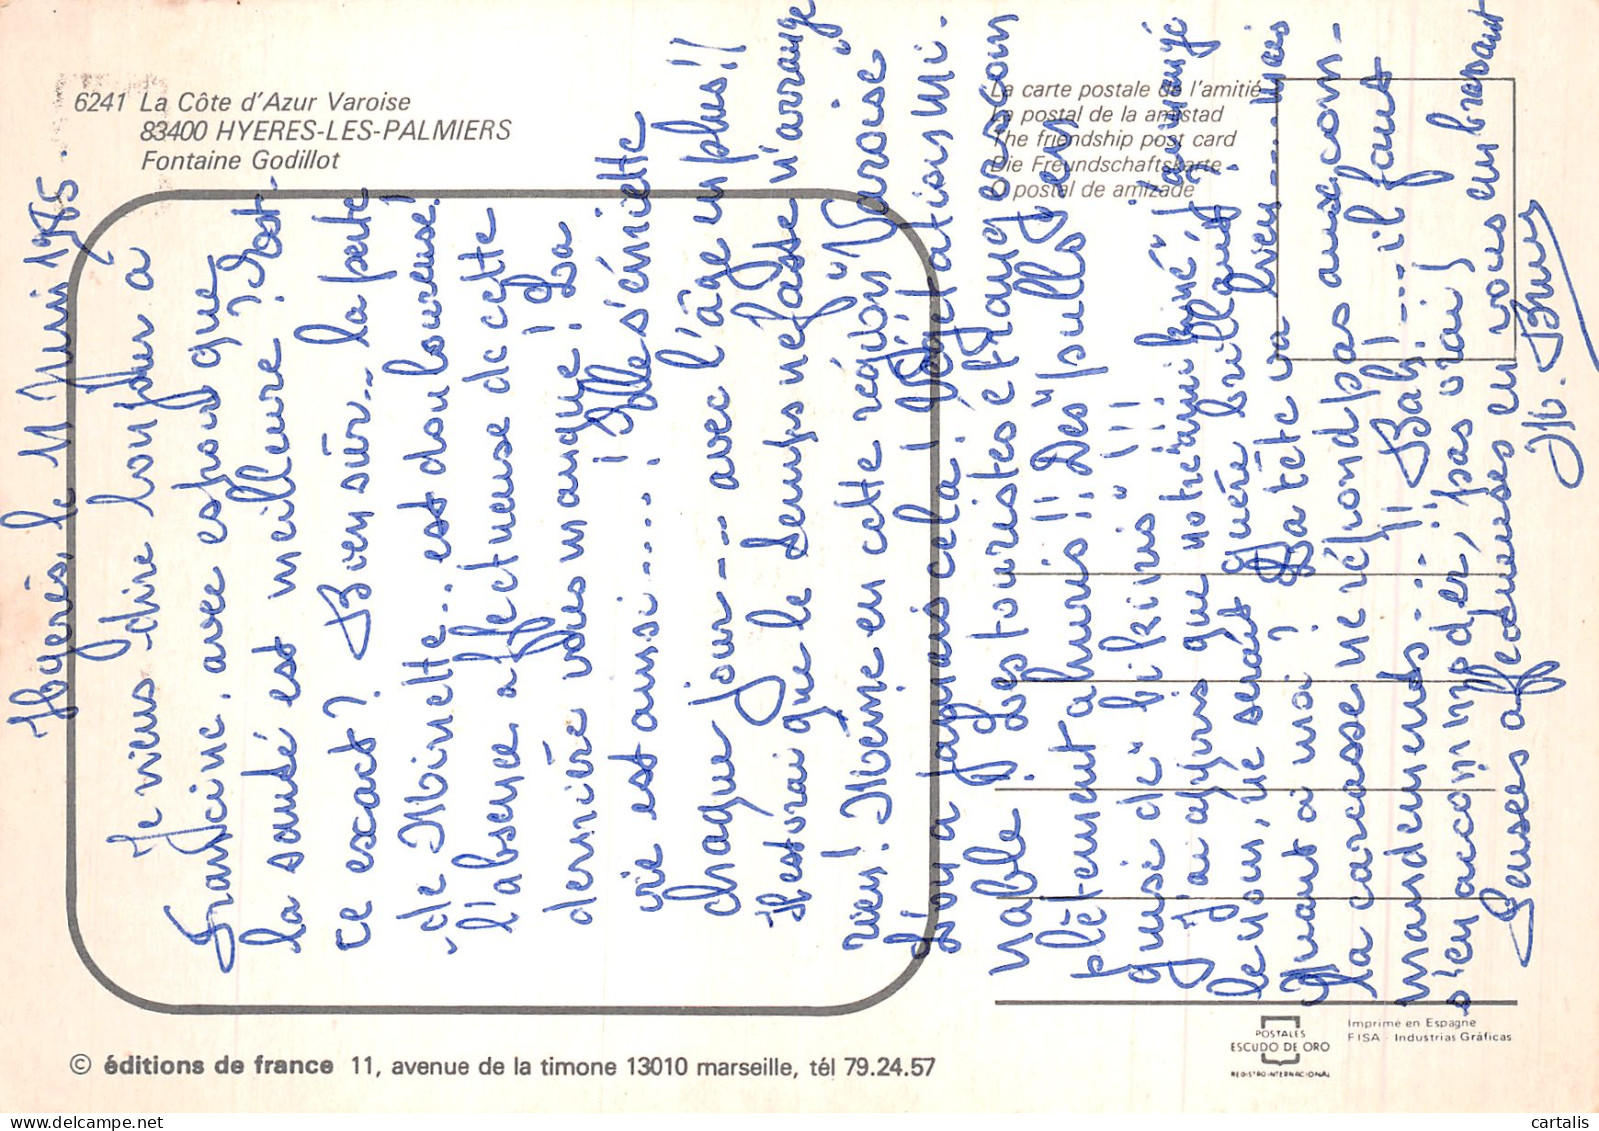 6241 La Côte d'Azur Varoise
83400 HYERES-LES-PALMIERS
Fontaine Godillot
La carte postale de l'amitié
La postal de la amistad
The friendship post card
Die Freundschaftskarte
O postal de amizade
Hyères, le 11 Juin 1985.
Je viens dire bonjour à
Francine, avec espoir que
la santé est meilleure ? Est-
ce exact ? Bien sûr... la perte
de Minette... est douloureuse !
l'absence affectueuse de cette
dernière vous manque ! La
vie est ainsi.... ! Elle s'émiette
chaque jour--- avec l'âge en plus !!
Il est vrai que le temps néfaste n'arrange
rien ! Même en cette région "Varoise"
L'on a jamais cela ! Végétations mi-
nable ! Les touristes étrangers sont com-
plètement ahuris !! Des "pulls" en
guise de "bikinis" !!!
J'ai appris que notre ami Aimé, a
le nou, ne serait guère brillant ?
Quant à moi ? La tête va bien.... mais
la carcasse ne répond pas aux com-
mandements... !! Bah ! ....il faut
s'en accommoder, pas vrai !
Pensées affectueuses en vous embrassant
© éditions de france 11, avenue de la timone 13010 marseille, tél 79.24.57
POSTALES
ESCUDO DE ORO
REGISTRO INTERNACIONAL
Imprimé en Espagne
FISA - Industrias Gráficas
cartalis